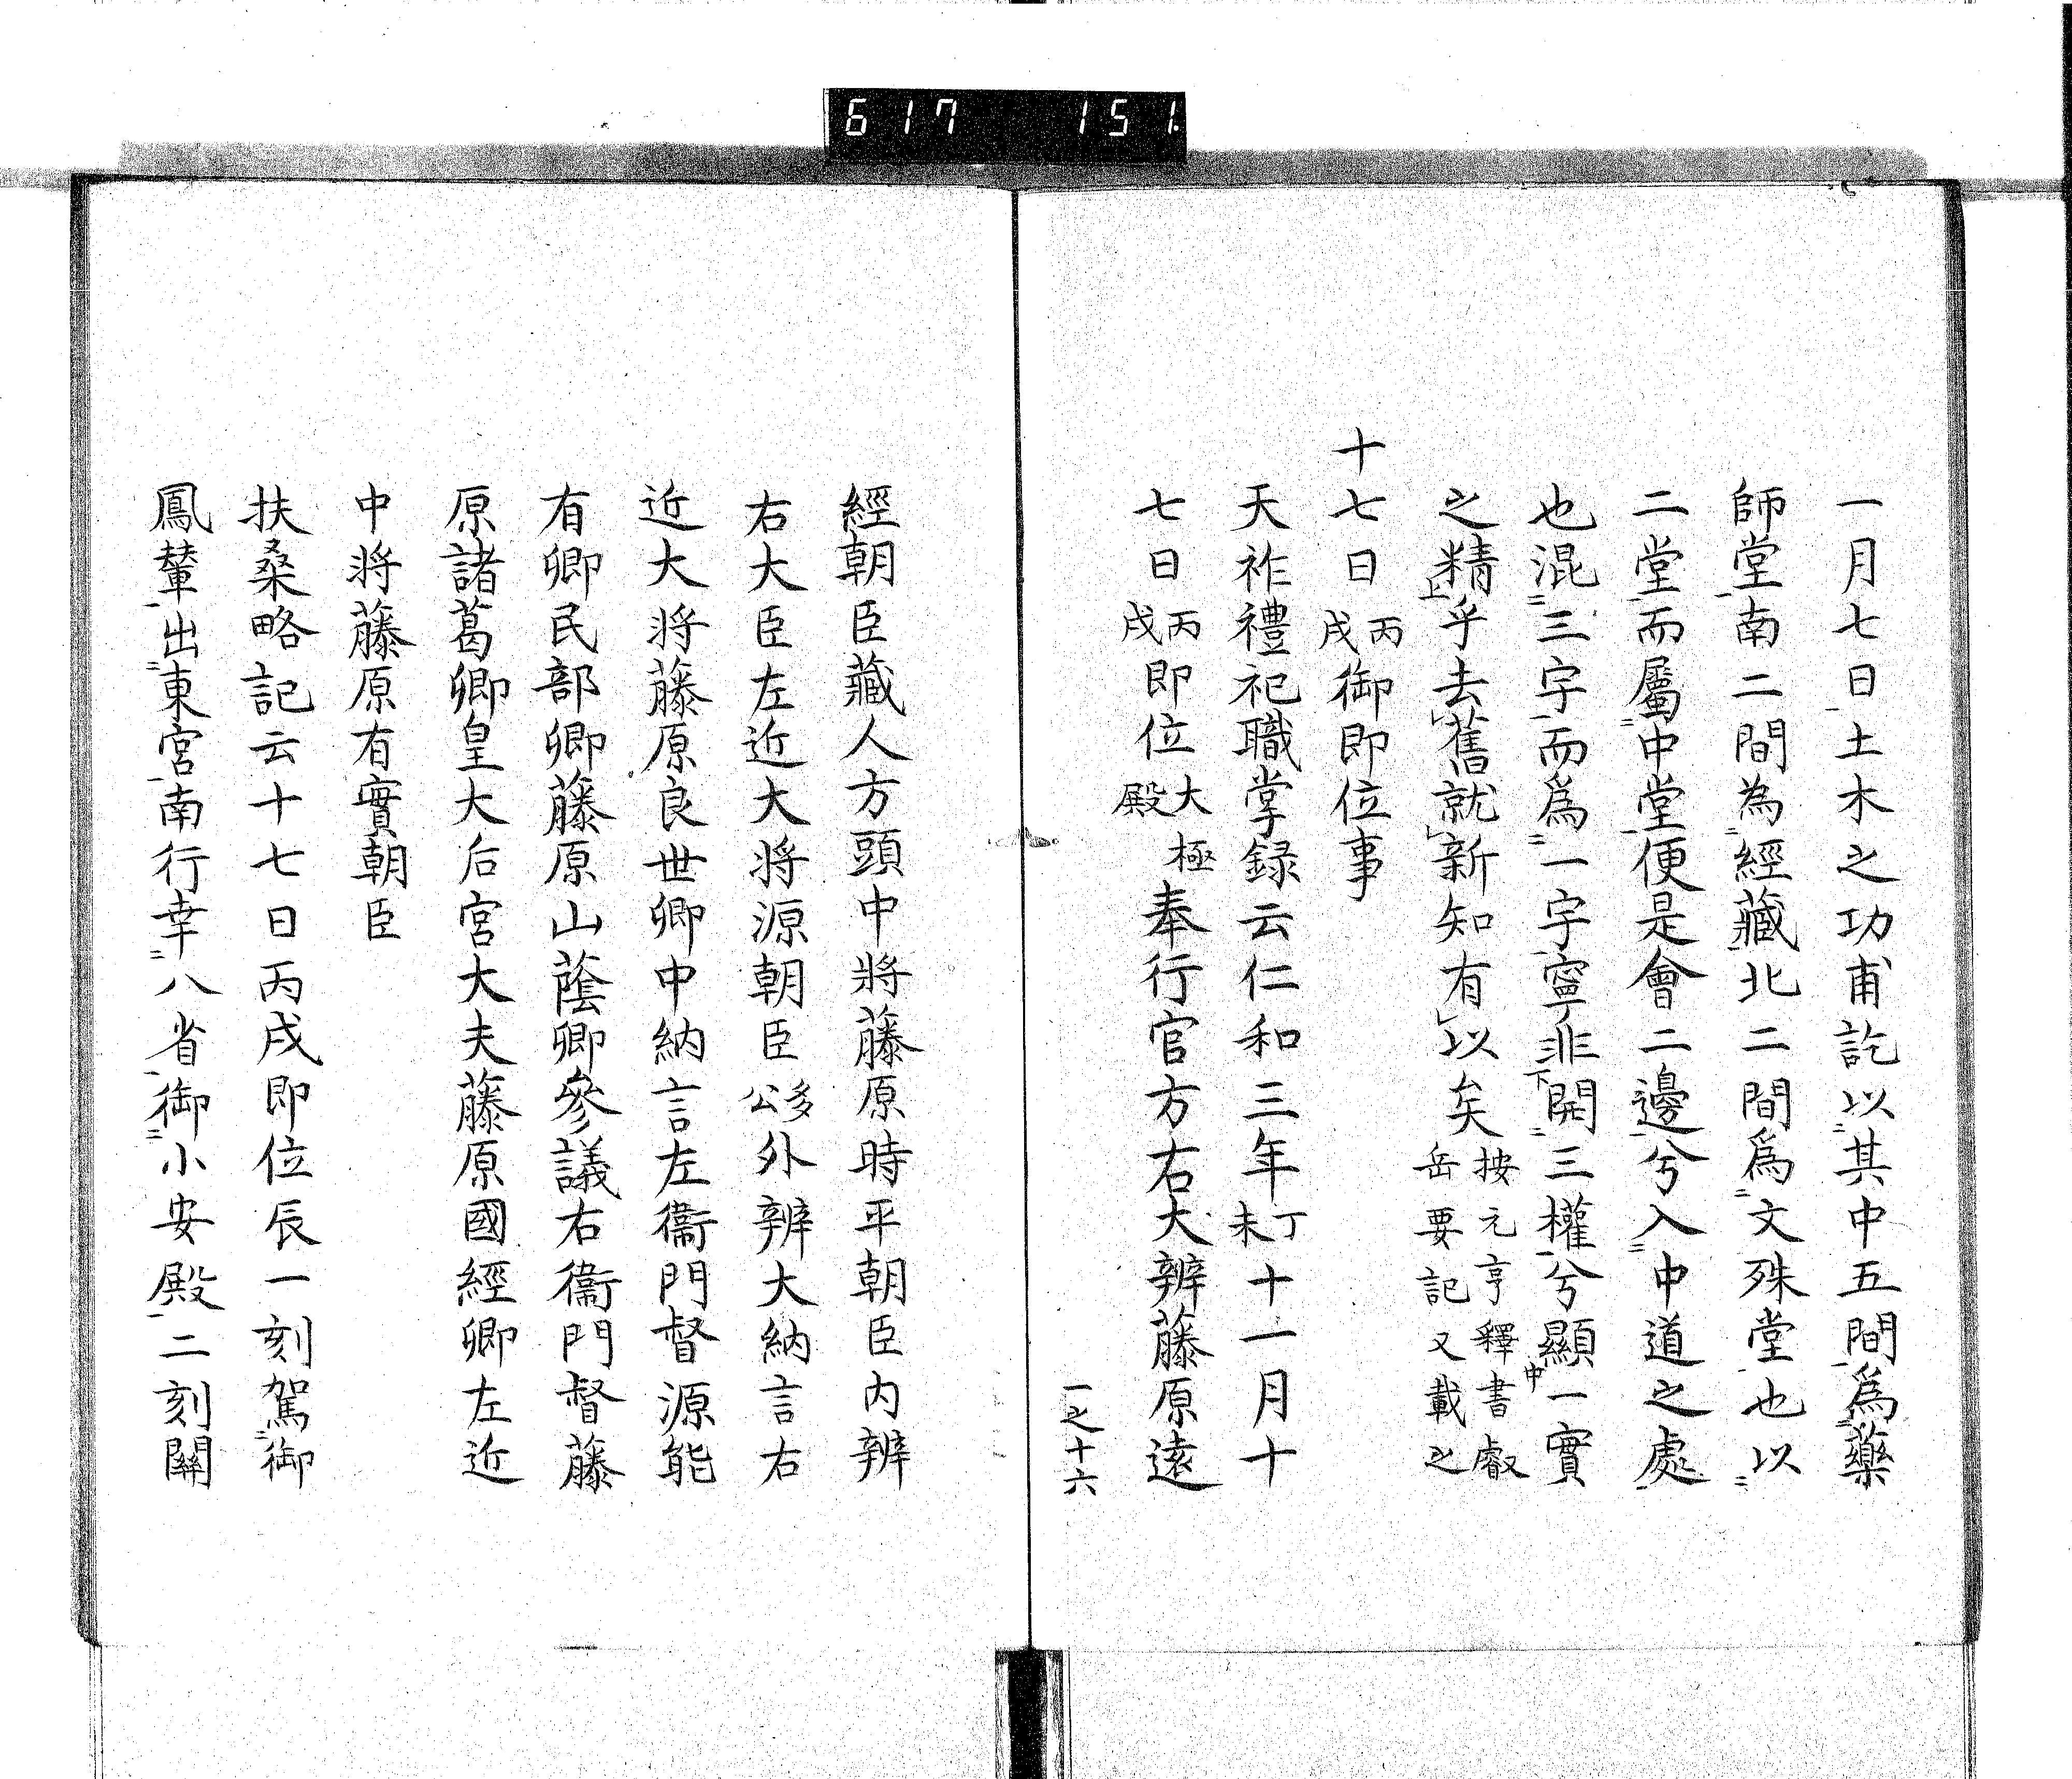 617 151
一月七日土木之功甫訖以其中五間爲藥
師堂南二間為經藏北二間爲文殊堂也以
二堂而屬中堂便是會二邊兮入中道之處
也混三宇而爲一宇寧非開三權兮顯一實
之精乎去舊就新知有以矣按元亨釋書叡岳要記又載之
十七日丙戌御即位事
天祚禮祀職掌録云仁和三年丁未十一月十
七日丙戌即位大極殿奉行官方右大辨藤原遠
一之十六
經朝臣藏人方頭中將藤原時平朝臣内辨
右大臣左近大将源朝臣多公外辨大納言右
近大将藤原良世卿中納言左衞門督源能
有卿民部卿藤原山蔭卿參議右衞門督藤
原諸葛卿皇大后宮大夫藤原國經卿左近
中将藤原有實朝臣
扶桑略記云十七日丙戌即位辰一刻駕御
鳳輦出東宮南行幸八省御小安殿二刻闢